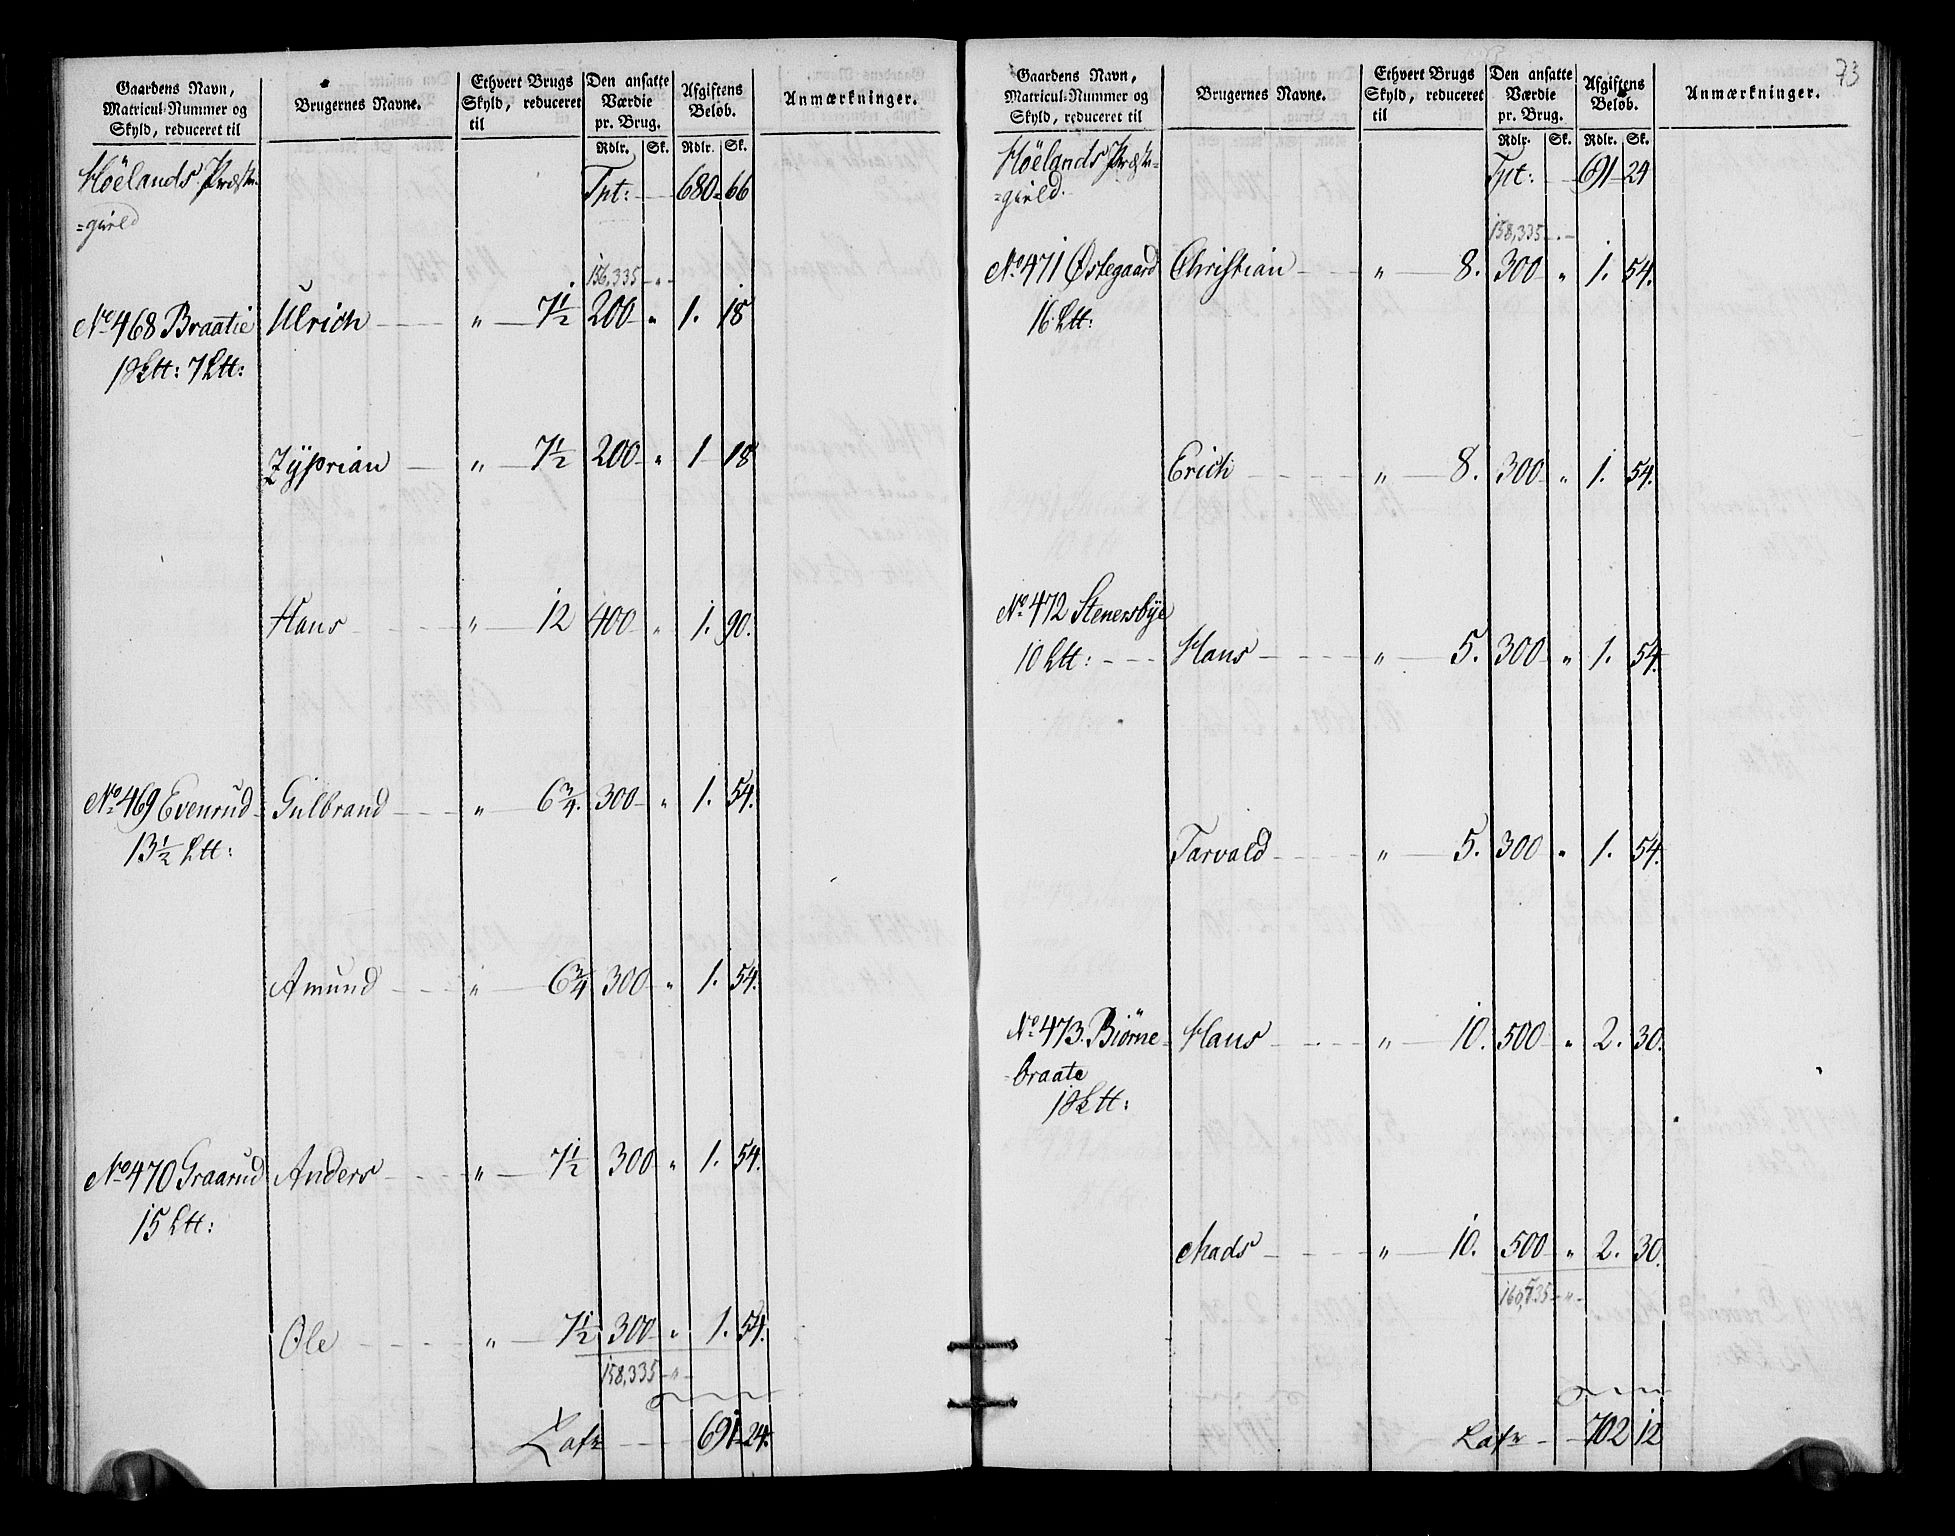 Gaardens Navn, Matricul-Nummer og Skyld, reduceret til | Brugernes Navne. | Ethvert Brugs Skyld, reduceret til | Den ansatte Værdie pr. Brug. | Afgiftens Beløb. | Anmærkninger.
Rdlr. Sk. Rdlr. Sk.
Höelands Præste-
=gield
Tpt: 680 66
156,335 - " -
No 468 Braatie Ulrich " 7½ 200 " 1. 18
Ztt: 7 Ltt:
Zÿprian " 7½ 200 " 1 18
Hans " 12 400 " 1. 90.
No 469 Evenrud Gulbrand " 6¾. 300 " 1. 54.
13½ Ltt:
Amund " 6¾ 300 " 1. 54.
No 470 Graarud Anders " 7½ 300 " 1. 54.
15 Ltt:
Ole " 7½ 300 " 1. 54.
158,335 - " -
Lats 691 24.
73
Gaardens Navn, Matricul-Nummer og Skyld, reduceret til | Brugernes Navne. | Ethvert Brugs Skyld, reduceret til | Den ansatte Værdie pr. Brug. | Afgiftens Beløb. | Anmærkninger.
Rdlr. Sk. Rdlr. Sk.
Höelands Præste-
=gield.
Tpt: 691 24
158,335 - " -
No 471 Østegaard Christian " 8. 300 " 1. 54.
16 Ltt:
Erich " 8. 300 " 1. 54.
No 472 Stenersbÿe
10 Ltt: Hans " 5. 300 " 1. 54.
Tarvald " 5. 300 " 1. 54.
No 473. Biørne- Hans " 10. 500 " 2. 30.
=braate
Mads " 10. 500 " 2. 30.
Lats 702 12